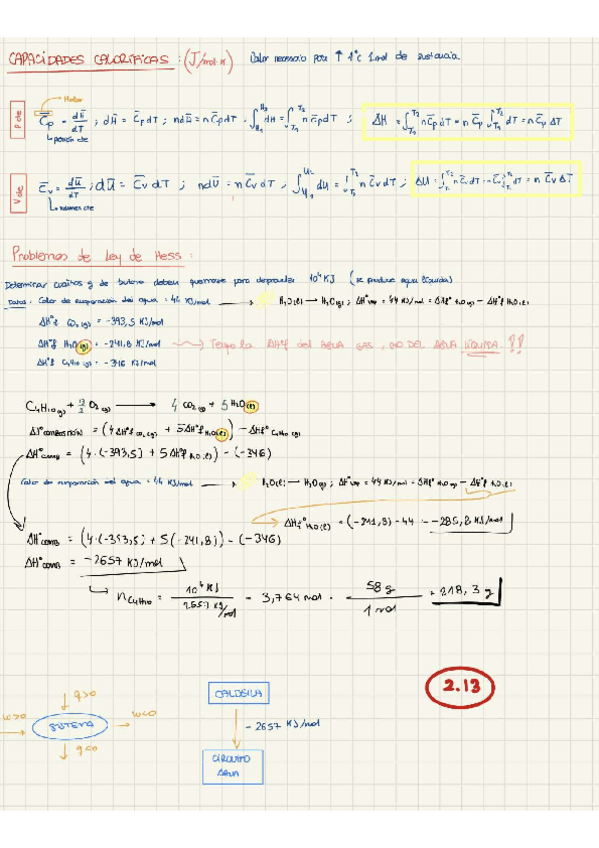 CAPACIDADES CALORÍFICAS : (J/mol·K) Calor necesario para ↑ 1°C 1 mol de sustancia.
Molar
P cte
C̄p = dH̄/dT ; dH̄ = C̄p dT ; ndH̄ = n C̄p dT . ∫H₁^H₂ dH = ∫T₁^T₂ n C̄p dT ; ΔH = ∫T₁^T₂ n C̄p dT = n C̄p ∫T₁^T₂ dT = n C̄p ΔT
presión cte
V cte
C̄v = dū/dT ; dū = C̄v dT ; ndū = n C̄v dT , ∫U₁^U₂ du = ∫T₁^T₂ n C̄v dT ; ΔU = ∫T₁^T₂ n C̄v dT = n C̄v ∫T₁^T₂ dT = n C̄v ΔT
volumen cte
Problemas de Ley de Hess :
Determinar cuántos g de butano deben quemarse para desprender 10⁴ KJ (se produce agua líquida)
Datos : Calor de evaporación del agua = 44 KJ/mol → H₂O(l) → H₂O(g) ; ΔH°vap = 44 KJ/mol = ΔH°f H₂O(g) - ΔH°f H₂O(l)
ΔH°f CO₂(g) = -393,5 KJ/mol
ΔH°f H₂O(g) = -241,8 KJ/mol → Tengo la ΔH°f del AGUA GAS , NO DEL AGUA LÍQUIDA !!
ΔH°f C₄H₁₀(g) = -346 KJ/mol
C₄H₁₀(g) + 13/2 O₂(g) → 4 CO₂(g) + 5 H₂O(l)
ΔH°combustión = (4 ΔH°f CO₂(g) + 5 ΔH°f H₂O(l)) - ΔH°f C₄H₁₀(g)
ΔH°comb = (4·(-393,5) + 5 ΔH°f H₂O(l)) - (-346)
Calor de evaporación del agua = 44 KJ/mol → H₂O(l) → H₂O(g) ; ΔH°vap = 44 KJ/mol = ΔH°f H₂O(g) - ΔH°f H₂O(l)
ΔH°f H₂O(l) = (-241,8) - 44 = -285,8 KJ/mol
ΔH°comb = (4·(-393,5) + 5(-241,8)) - (-346)
ΔH°comb = -2657 KJ/mol
n C₄H₁₀ = 10⁴ KJ / 2657 KJ/mol = 3,764 mol · 58 g / 1 mol = 218,3 g
2.13
q>0
w>0 SISTEMA w<0
q<0
CALDSILA
-2657 KJ/mol
CIRCUITO
AGUA